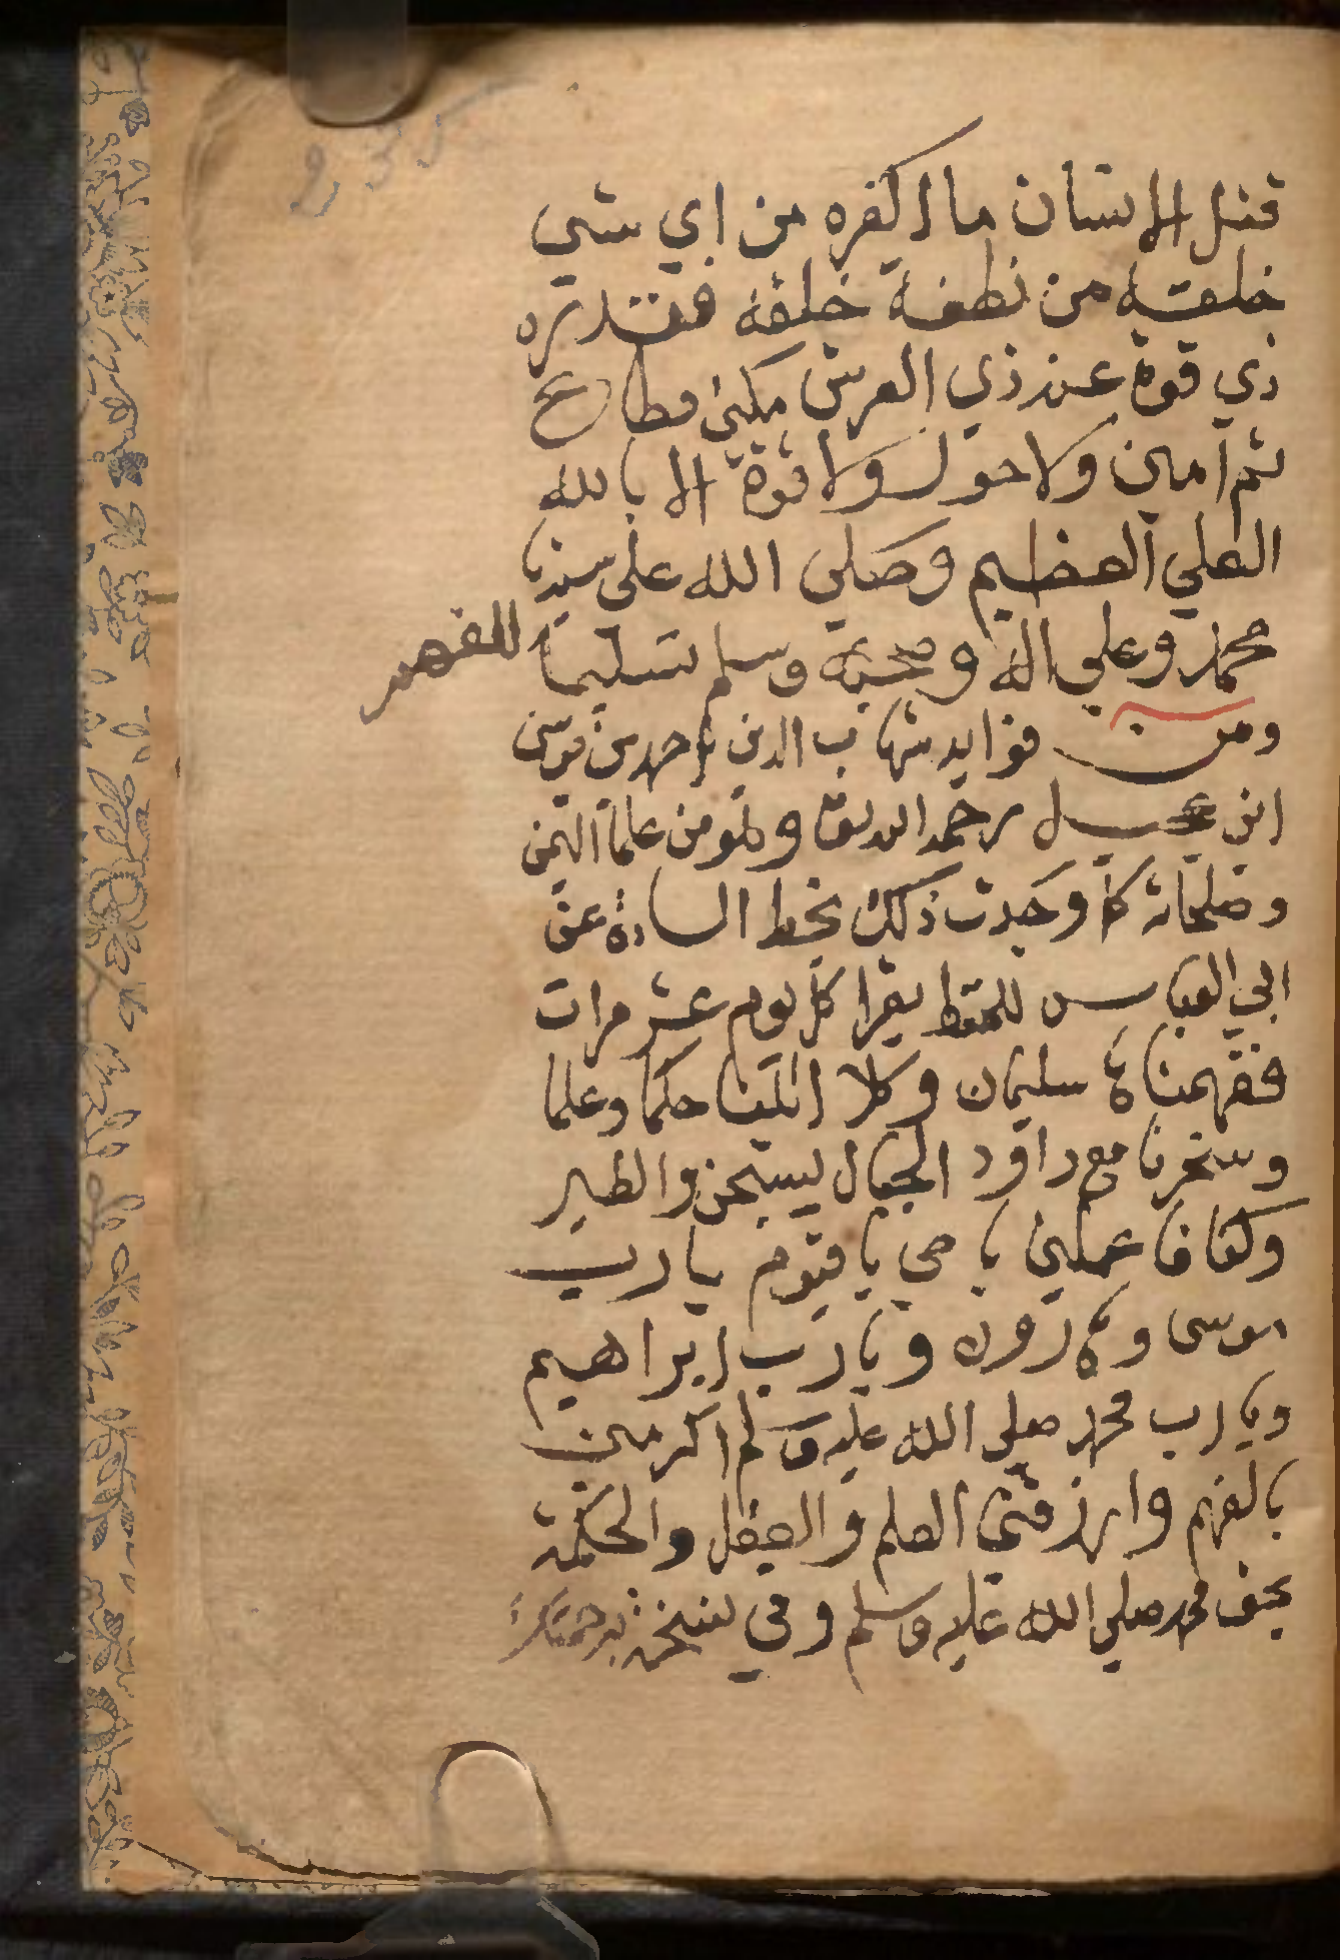 قتل الانسان ما اكفره من اي شي
خلقه من نطفة خلقه فقدره
ذي قوة عند ذي العرش مكين مطاع
ثم امين ولا حول ولا قوة الا بالله
العلي العظيم وصلي الله علي سيدنا
محمد وعلي اله وصحبه وسلم تسليما
للفهم
ومن فوايد شهاب الدين احمد بن موسى
ابن عجيل رحمه الله تعا وهو من علما اليمن
وصلحائه كما وجدت ذلك بخط السادة عن
ابي العباس للحفظ يقرا كل يوم عشر مرات
ففهمناها سليمان وكلا اتينا حكما وعلما
وسخرنا مع داود الجبال يسبحن والطير
وكنا فاعلين يا حي يا قيوم يا رب
موسى وهارون ويا رب ابراهيم
ويا رب محمد صلى الله عليه وسلم اكرمني
بالفهم وارزقني العلم والعقل والحكمة
بحق محمد صلي الله عليه وسلم وفي نسخة برحمتك